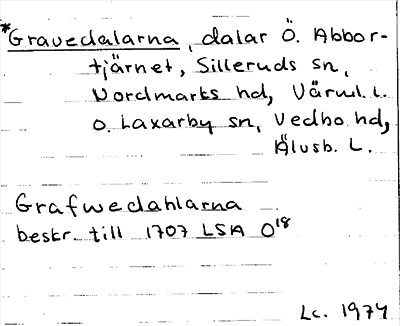 *Gravedalarna, dalar Ö. Abbor-
tjärnet, Silleruds sn,
Nordmarks hd, Värml. L.
o. Laxarby sn, Vedbo hd,
Älvsb. L.
Grafwedahlarna
beskr. till 1707 LSA O¹⁸
Lc. 1974